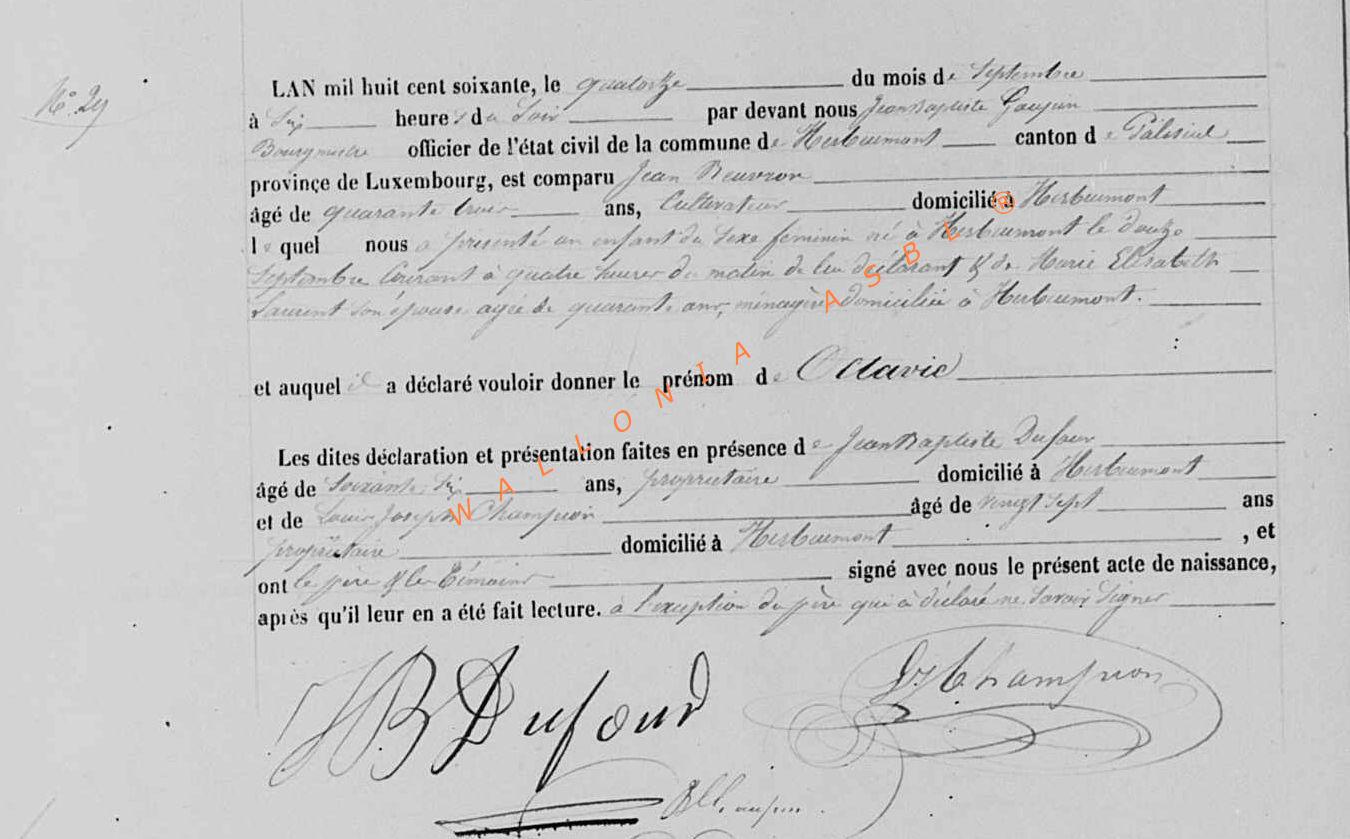 N° 29
LAN mil huit cent soixante, le quatorze du mois de Septembre
à Six heures du Soir par devant nous Jean Baptiste
Bourgmestre officier de l'état civil de la commune de Herbeumont canton de Paliseul
province de Luxembourg, est comparu Jean Beuvron
âgé de quarante trois ans, Cultivateur domicilié à Herbeumont
lequel nous a présenté un enfant du Sexe féminin né à Herbeumont le douze
Septembre Courant à quatre heures du matin de lui déclarant & de Marie Elisabeth
Laurent Son épouse agée de quarante ans, ménagère domiciliée à Herbeumont.
et auquel il a déclaré vouloir donner le prénom de Octavie
Les dites déclaration et présentation faites en présence de Jean Baptiste Dufour
âgé de Soixante Six ans, propriétaire domicilié à Herbeumont
et de Louis Joseph Champion âgé de vingt Sept ans
propriétaire domicilié à Herbeumont , et
ont le père & les témoins signé avec nous le présent acte de naissance,
après qu'il leur en a été fait lecture. à l'exception du père qui à déclaré ne Savoir Signer
JB Dufour
LJ Champion
WALLONIA ASBL ®